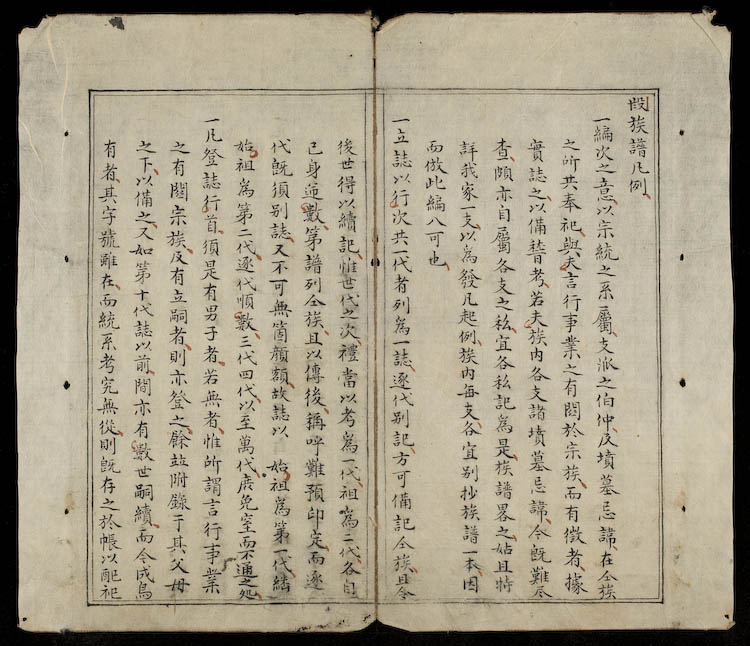 段族譜凡例
一編次之意以宗統之系屬支派之伯仲及墳墓忌諱在仝族
之所共奉祀與夫言行事業之有関於宗族而有徵者據
實誌之以備替考若夫族内各支諸墳墓忌諱今既難尽
查頗亦自屬各支之私宜各私記為是族譜畧之姑且特
詳我家一支以為發凡起例族内每支各宜别抄族譜一本因
而倣此編入可也
一立誌以行次共一代者列為一誌逐代别記方可備記仝族且令
後世得以續記惟世代之次禮當以考為一代祖為二代各自
己身逆數第譜列仝族且以傳後稱呼難預印定而逐
代既須别誌又不可無箇顔額故誌以 始祖為第一代繼
始祖為第二代逐代順數三代四代以至萬代庶免窒而不通之処
一凡登誌行首須是有男子者若無者惟所謂言行事業
之有関宗族及有立嗣者則亦登之餘竝附錄于其父母
之下以備之又如第十代誌以前間亦有數世嗣續而今成烏
有者其字號雖在而統系考究無從則既存之於帳以配祀